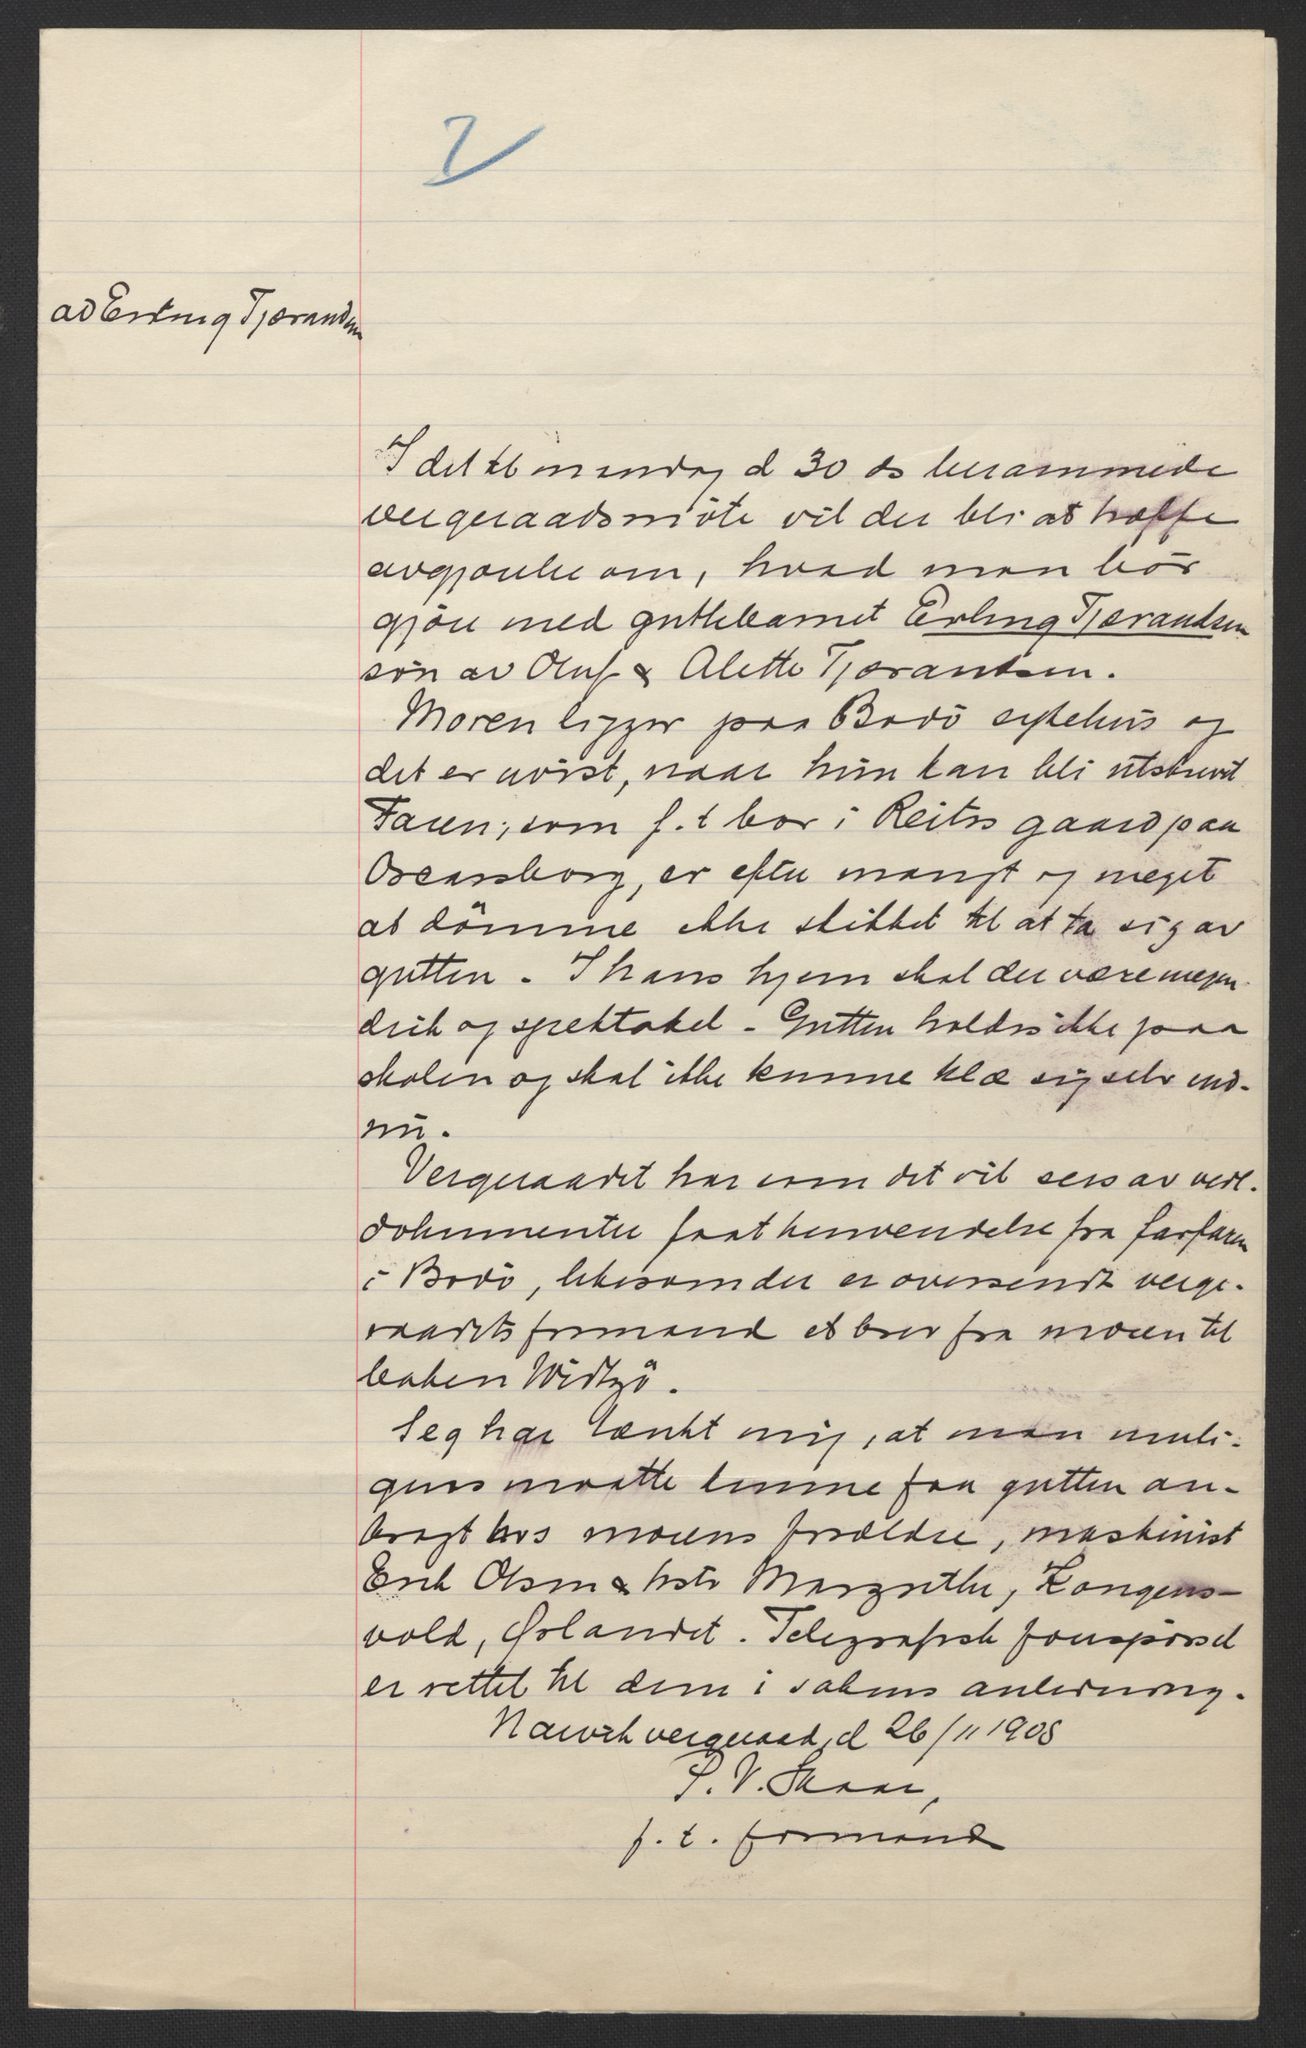 V
ad Erling Tjærandsen
I det til mandag d 30 ds berammede
vergeraadsmöte vil der bli at træffe
avgjörelse om, hvad man bör
gjöre med guttebarnet Erling Tjærandsen
sön av Oluf & Alette Tjærandsen.
Moren ligger paa Bodö sykehus og
det er uvist, naar hun kan bli utskrevet
Faren, som f. t bor i Reitss gaard paa
Oscarsborg, er efter mangt og meget
at dömme ikke skikket til at ta sig av
gutten - I hans hjem skal der være megen
drik og spektakel - Gutten holdes ikke paa
skolen og skal ikke kunne klæ sig selv end-
nu.
Vergeraadet har som det vil sees av vedl.
dokumenter faat henvendelse fra farfaren
i Bodö, likesom der er oversendt verge-
raadets formand et brev fra moren til
baker Widtzö.
Jeg har tænkt mig, at man muli-
gens maatte kunne faa gutten an-
bragt hos morens forældre, maskinist
Erik Olsen & hstr Margrethe, Kongens-
vold, Ørlandet. Telegrafisk forespörsel
er rettet til dem i sakens anledning.
Narvik vergeraad, d 26/11 1908
P. V. Skaar,
f. t. formand